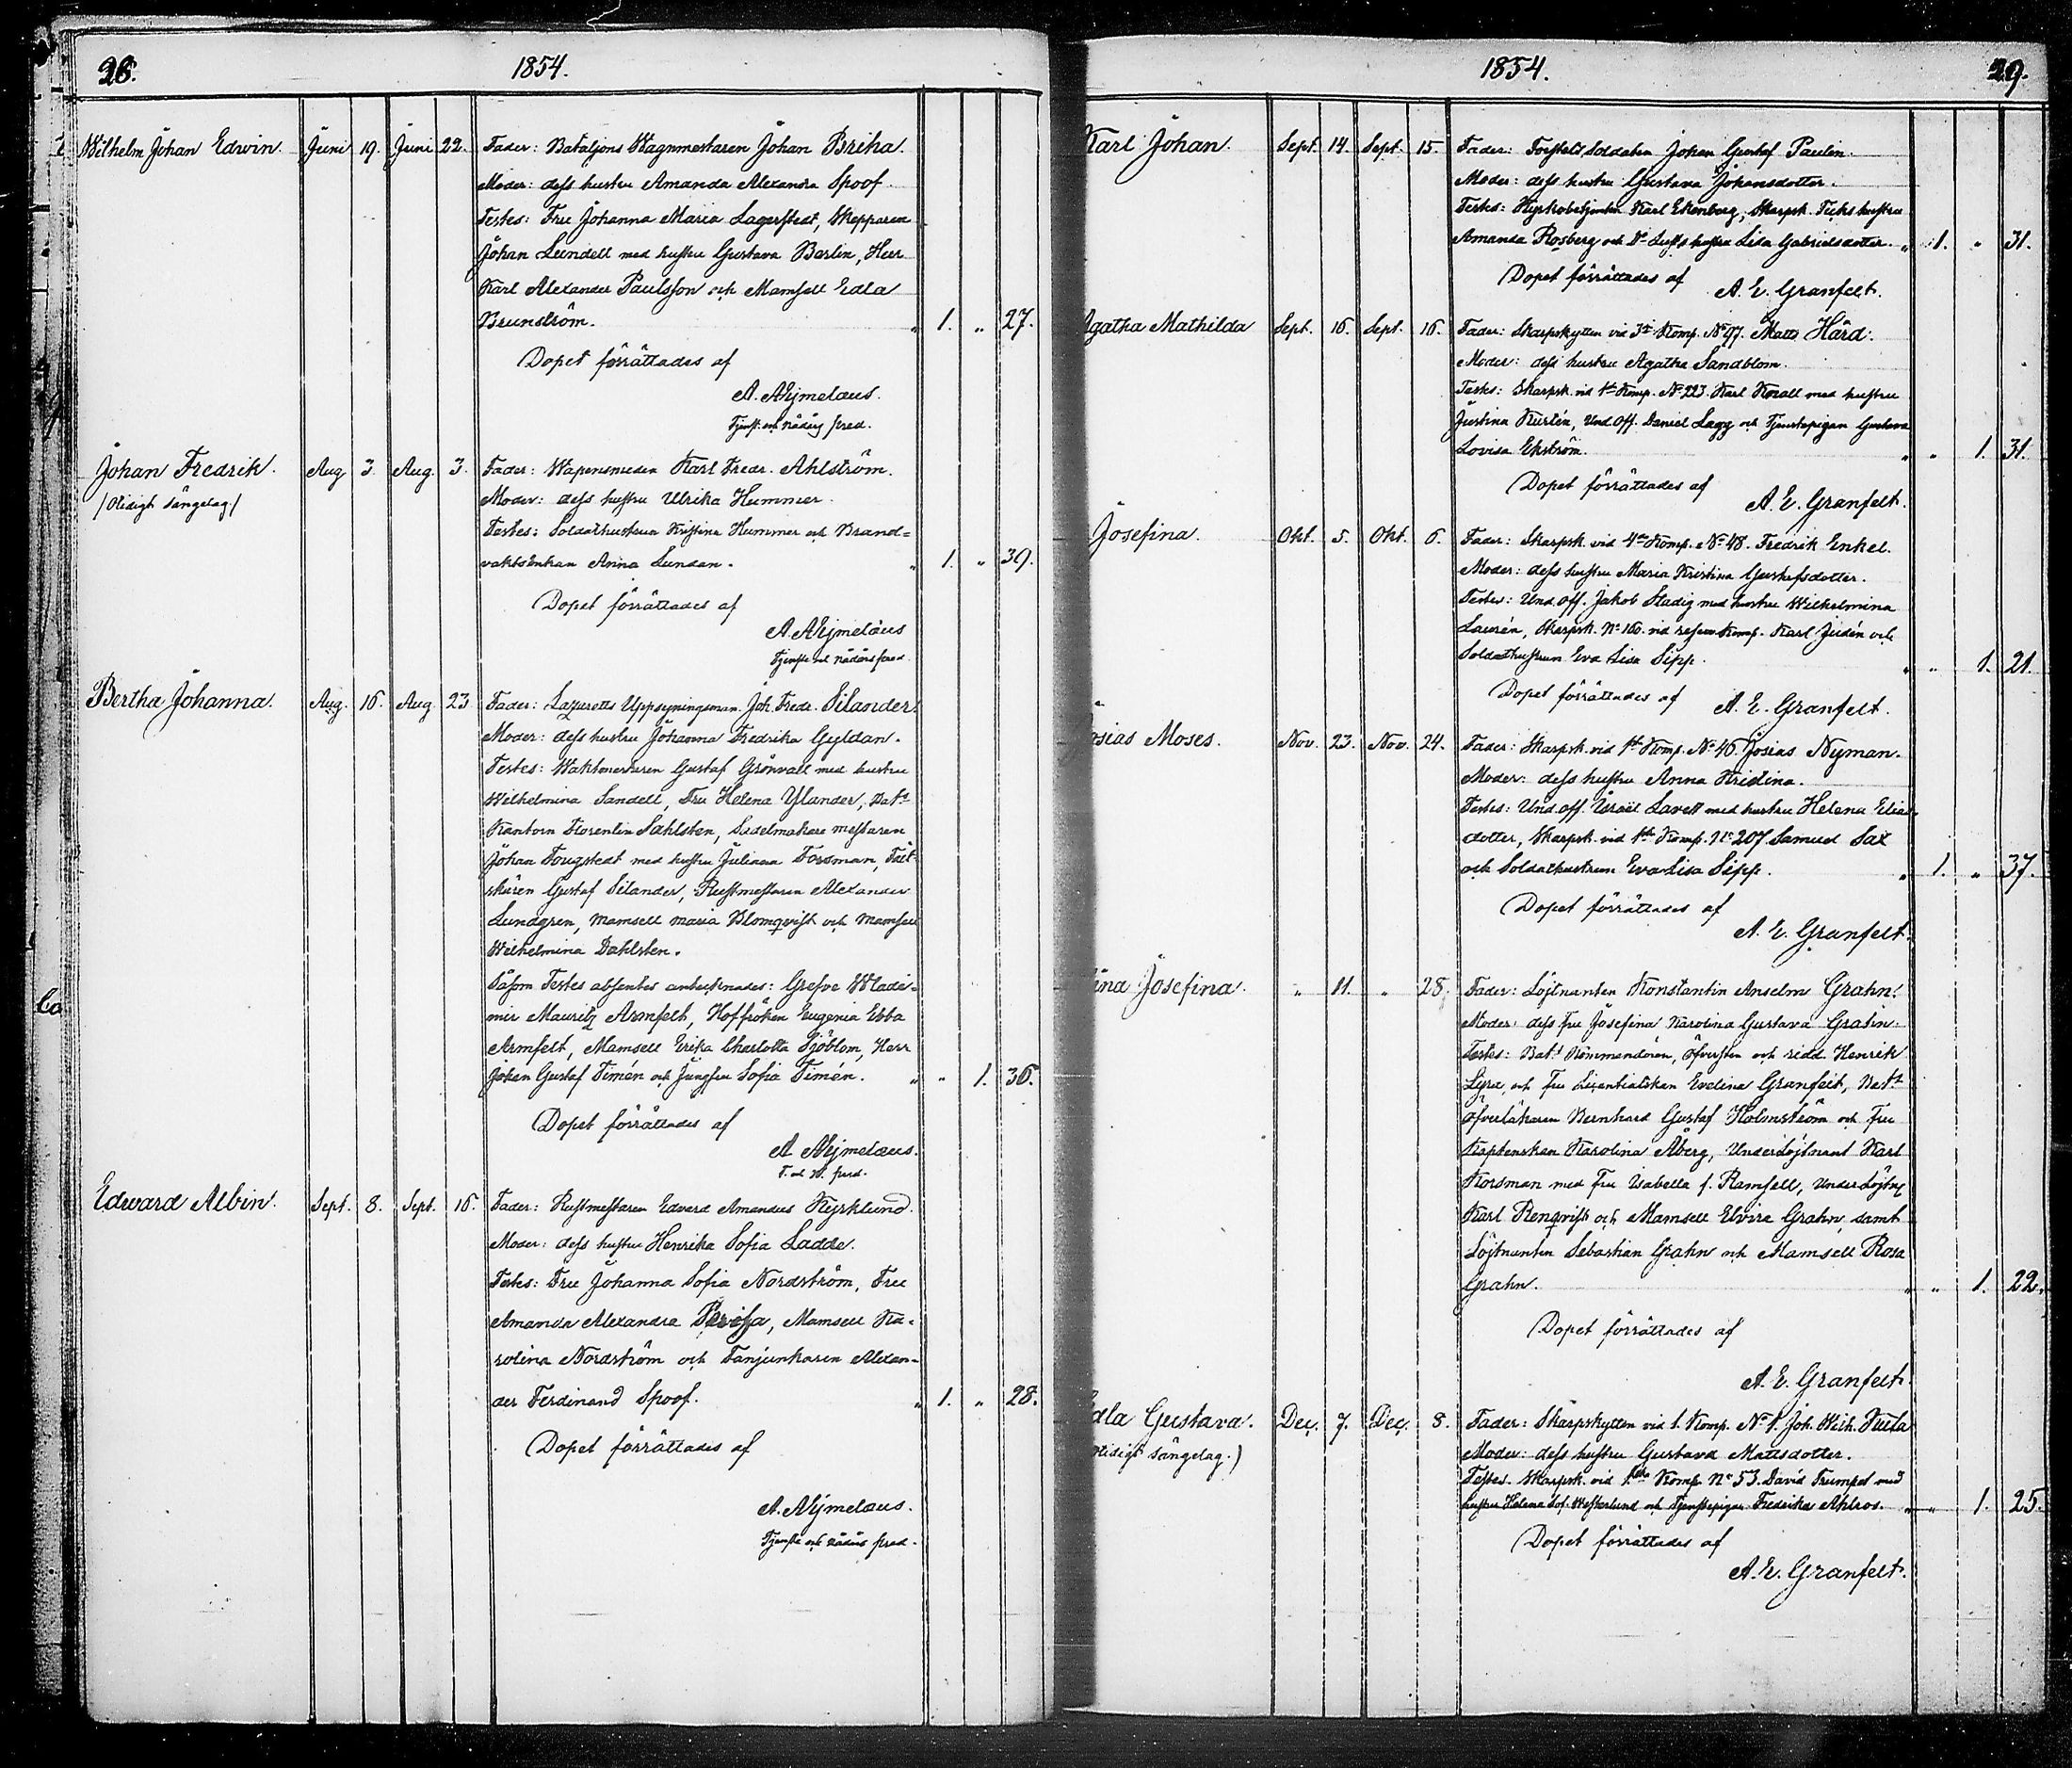 28. 1854.
Wilhelm Johan Edwin. Juni 19. Juni 22. Fader: Bataljons Wagnmestaren Johan Briha.
Moder: dess hustru Amanda Alexandra Spoof.
Testes: Fru Johanna Maria Lagerstedt, Skepparen
Johan Lundell med hustru Gustava Berlin, Herr
Karl Alexander Paulsson och Mamsell Edla
Brunström. „ 1. „ 27.
Dopet förrättades af
A. Nijmelæus.
Tjenst. och nådårs pred.
Johan Fredrik. Aug 3. Aug. 3. Fader: Wapensmeden Karl Fredr. Ahlström.
/Oledigt sängelag/ Moder: dess hustru Ulrika Hummer.
Testes: Soldathustrun Kristina Hummer och Brand=
vaktsenkan Anna Lundan. „ 1. „ 39.
Dopet förrättades af
A. Nijmelæus
Tjenste och nådårs pred.
Bertha Johanna. Aug. 16. Aug. 23 Fader: Lazaretts Uppsyningsman Joh. Fredr. Silander.
Moder: dess hustru Johanna Fredrika Gyldan.
Testes: Waktmestaren Gustaf Grönvall med hustru
Wilhelmina Sandell, Fru Helena Ylander, Bat:s
Kantorn Florentin Sahlsten, Sadelmakare mestaren
Johan Tougstedt med hustru Juliana Forsman, Fält-
skären Gustaf Silander, Rustmestaren Alexander
Lundgren, Mamsell Maria Blomqvist och Mamsell
Wilhelmina Dahlsten.
Såsom Testes absentes antecknades: Grefve Wladi-
mir Mauritz Armfelt, Hoffröken Eugenia Ebba
Armfelt, Mamsell Erika Charlotta Sjöblom, Herr
Johan Gustaf Timén och Jungfru Sofia Timén. „ „ 1. 36.
Dopet förrättades af
A Nijmelæus.
T. och N. pred.
Edward Albin. Sept. 8. Sept. 16. Fader: Rustmestaren Edvard Amandus Kyrklund.
Moder: dess hustru Henrika Sofia Ladde.
Testes: Fru Johanna Sofia Nordström, Fru
Amanda Alexandra, Mamsell Ka-
rolina Nordström och Fanjunkaren Alexan-
der Ferdinand Spoof. „ 1. „ 28.
Dopet förrättades af
A. Nijmelæus.
Tjenste och nådårs pred.
1854. 29.
Karl Johan. Sept. 14. Sept. 15. Fader: Soldaten Johan Gustaf Paulin.
Moder: dess hustru Gustava Johansdotter.
Testes: Kyrkobetjenten Karl Ekenberg, Skarpsk. hustru
Amanda Rosberg och hustru Lisa Gabrielsdotter. „ 1. „ 31.
Dopet förrättades af
A. E. Granfelt.
Agatha Mathilda Sept. 16. Sept. 16. Fader: Skarpskytten vid 3:e Komp. No 97. Matts Hård.
Moder: dess hustru Agatha Sandblom.
Testes: Skarpsk. vid 1:a Komp. No 223. Karl Korall med hustru
Justina Kurtén, Und.Off. Daniel Lagg och Tjenstepigan Gustava
Lovisa Ekström. „ „ 1. 31.
Dopet förrättades af
A. E. Granfelt.
Josefina. Okt. 5. Okt. 6. Fader: Skarpsk. vid 4:de Komp. No 48. Fredrik Enkel.
Moder: dess hustru Maria Kristina Gustafsdotter.
Testes: Und.off. Jakob Stadig med hustru Wilhelmina
Laurén, Skarpsk. No 160. vid reserv Komp. Karl Judén och
Soldathustrun Eva Lisa Sipp. „ „ 1. 21.
Dopet förrättades af
A. E. Granfelt.
Josias Moses. Nov. 23. Nov. 24. Fader: Skarpsk. vid 1:a Komp. No 46. Josias Nyman.
Moder: dess hustru Anna Kridina.
Testes: Und.off. Israel Lavett med hustru Helena Elias-
dotter, Skarpsk. vid 1:a Komp. No 207. Samuel Sax
och Soldathustrun Eva Lisa Sipp. „ 1. „ 37.
Dopet förrättades af
A. E. Granfelt.
ina Josefina. „ 11. „ 28. Fader: Löjtnanten Konstantin Anselm Grahn.
Moder: dess Fru Josefina Karolina Gustava Grahn.
Testes: Bat:s Kommendören, Öfversten och ridd. Henrik
Lyra och Fru Licentiatskan Evelina Granfelt, Bat:s
öfverläkaren Bernhard Gustaf Holmström och Fru
Kaptenskan Karolina Åberg, Underlöjtnant Karl
Korsman med Fru Isabella f. Ramsell, Underlöjtn.
Karl Renqvist och Mamsell Elvira Grahn samt
Löjtnanten Sebastian Grahn och Mamsell Rosa
Grahn. „ „ 1. 22.
Dopet förrättades af
A. E. Granfelt.
Edla Gustava. Dec. 7. Dec. 8. Fader: Skarpskytten vid 1. Komp. No 1. Joh. Wilh. Kula
oledigt sängelag.) Moder: dess hustru Gustava Mattsdotter.
Testes. Skarpsk. vid 1:sta Komp. No 53. David Trumpet med
hustru Helena Sof. Westerlund och Tjenstepigan Fredrika Ahlros. „ „ 1. 25.
Dopet förrättades af
A. E. Granfelt.